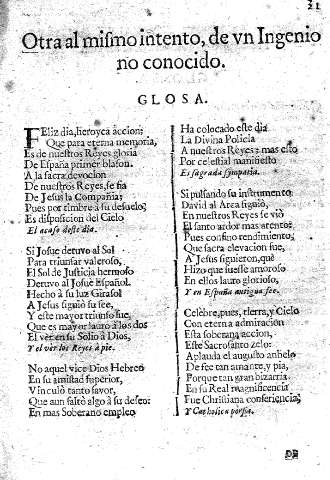 21
Otra al mismo intento, de vn Ingenio
no conocido.
GLOSA.
Feliz dia, heroyca accion;
Que para eterna memoria,
Es de nuestros Reyes gloria
De España primer blason.
A la sacra devocion
De nuestros Reyes, se fia
De Jesus la Compañia;
Pues por timbre à su desuelo,
Es disposicion del Cielo
El acaso deste dia.
Si Josue detuvo al Sol
Para triunfar valeroso,
El Sol de Justicia hermoso
Detuvo al Josue Español.
Hecho à su luz Girasol
A Jesus siguiò su fee,
Y este mayor triunfo fue,
Que es mayor lauro à los dos
El ver en su Solio à Dios,
Y el ver los Reyes à pie.
No aquel vice Dios Hebreo
En su amistad superior,
Vinculò tanto favor,
Que aun faltò algo à su deseo:
En mas Soberano empleo
Ha colocado este dia
La Divina Policia
A nuestros Reyes; mas
Por celestial manifiesto
Es sagrada sympatia.
Si pulsando su instrumento
David al Arca siguiò,
En nuestros Reyes se viò
El santo ardor mas atento:
Pues confino rendimiento,
Que sacra elevacion fue,
A Jesus siguieron, què
Hizo que fuesse amoroso
En ellos lauro glorioso,
Y en España antigua fee.
Celebre, pues, tierra, y Cielo
Con eterna admiraciòn
Esta soberana accion,
Este Sacrosanto zelo:
Aplauda el augusto anhelo
De fee tan amante, y pia,
Porque tan gran bizarria
En su Real magnificencia
Fue Christiana
Y Catholica porfia.
DE